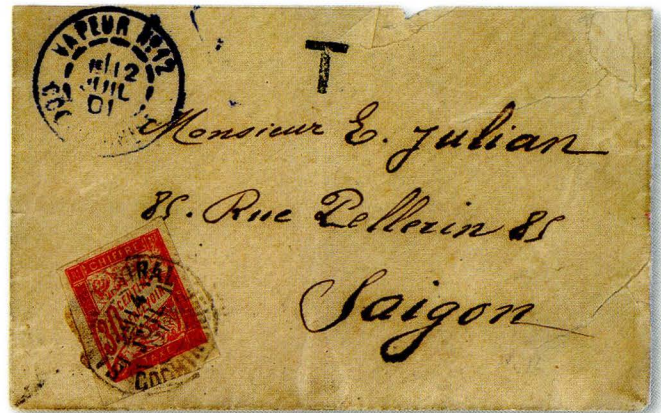 VAPEUR N°12
12
JUIL
01
T
Monsieur E. Julian
85. Rue Pellerin 85
Saigon
CHIFFRE
30